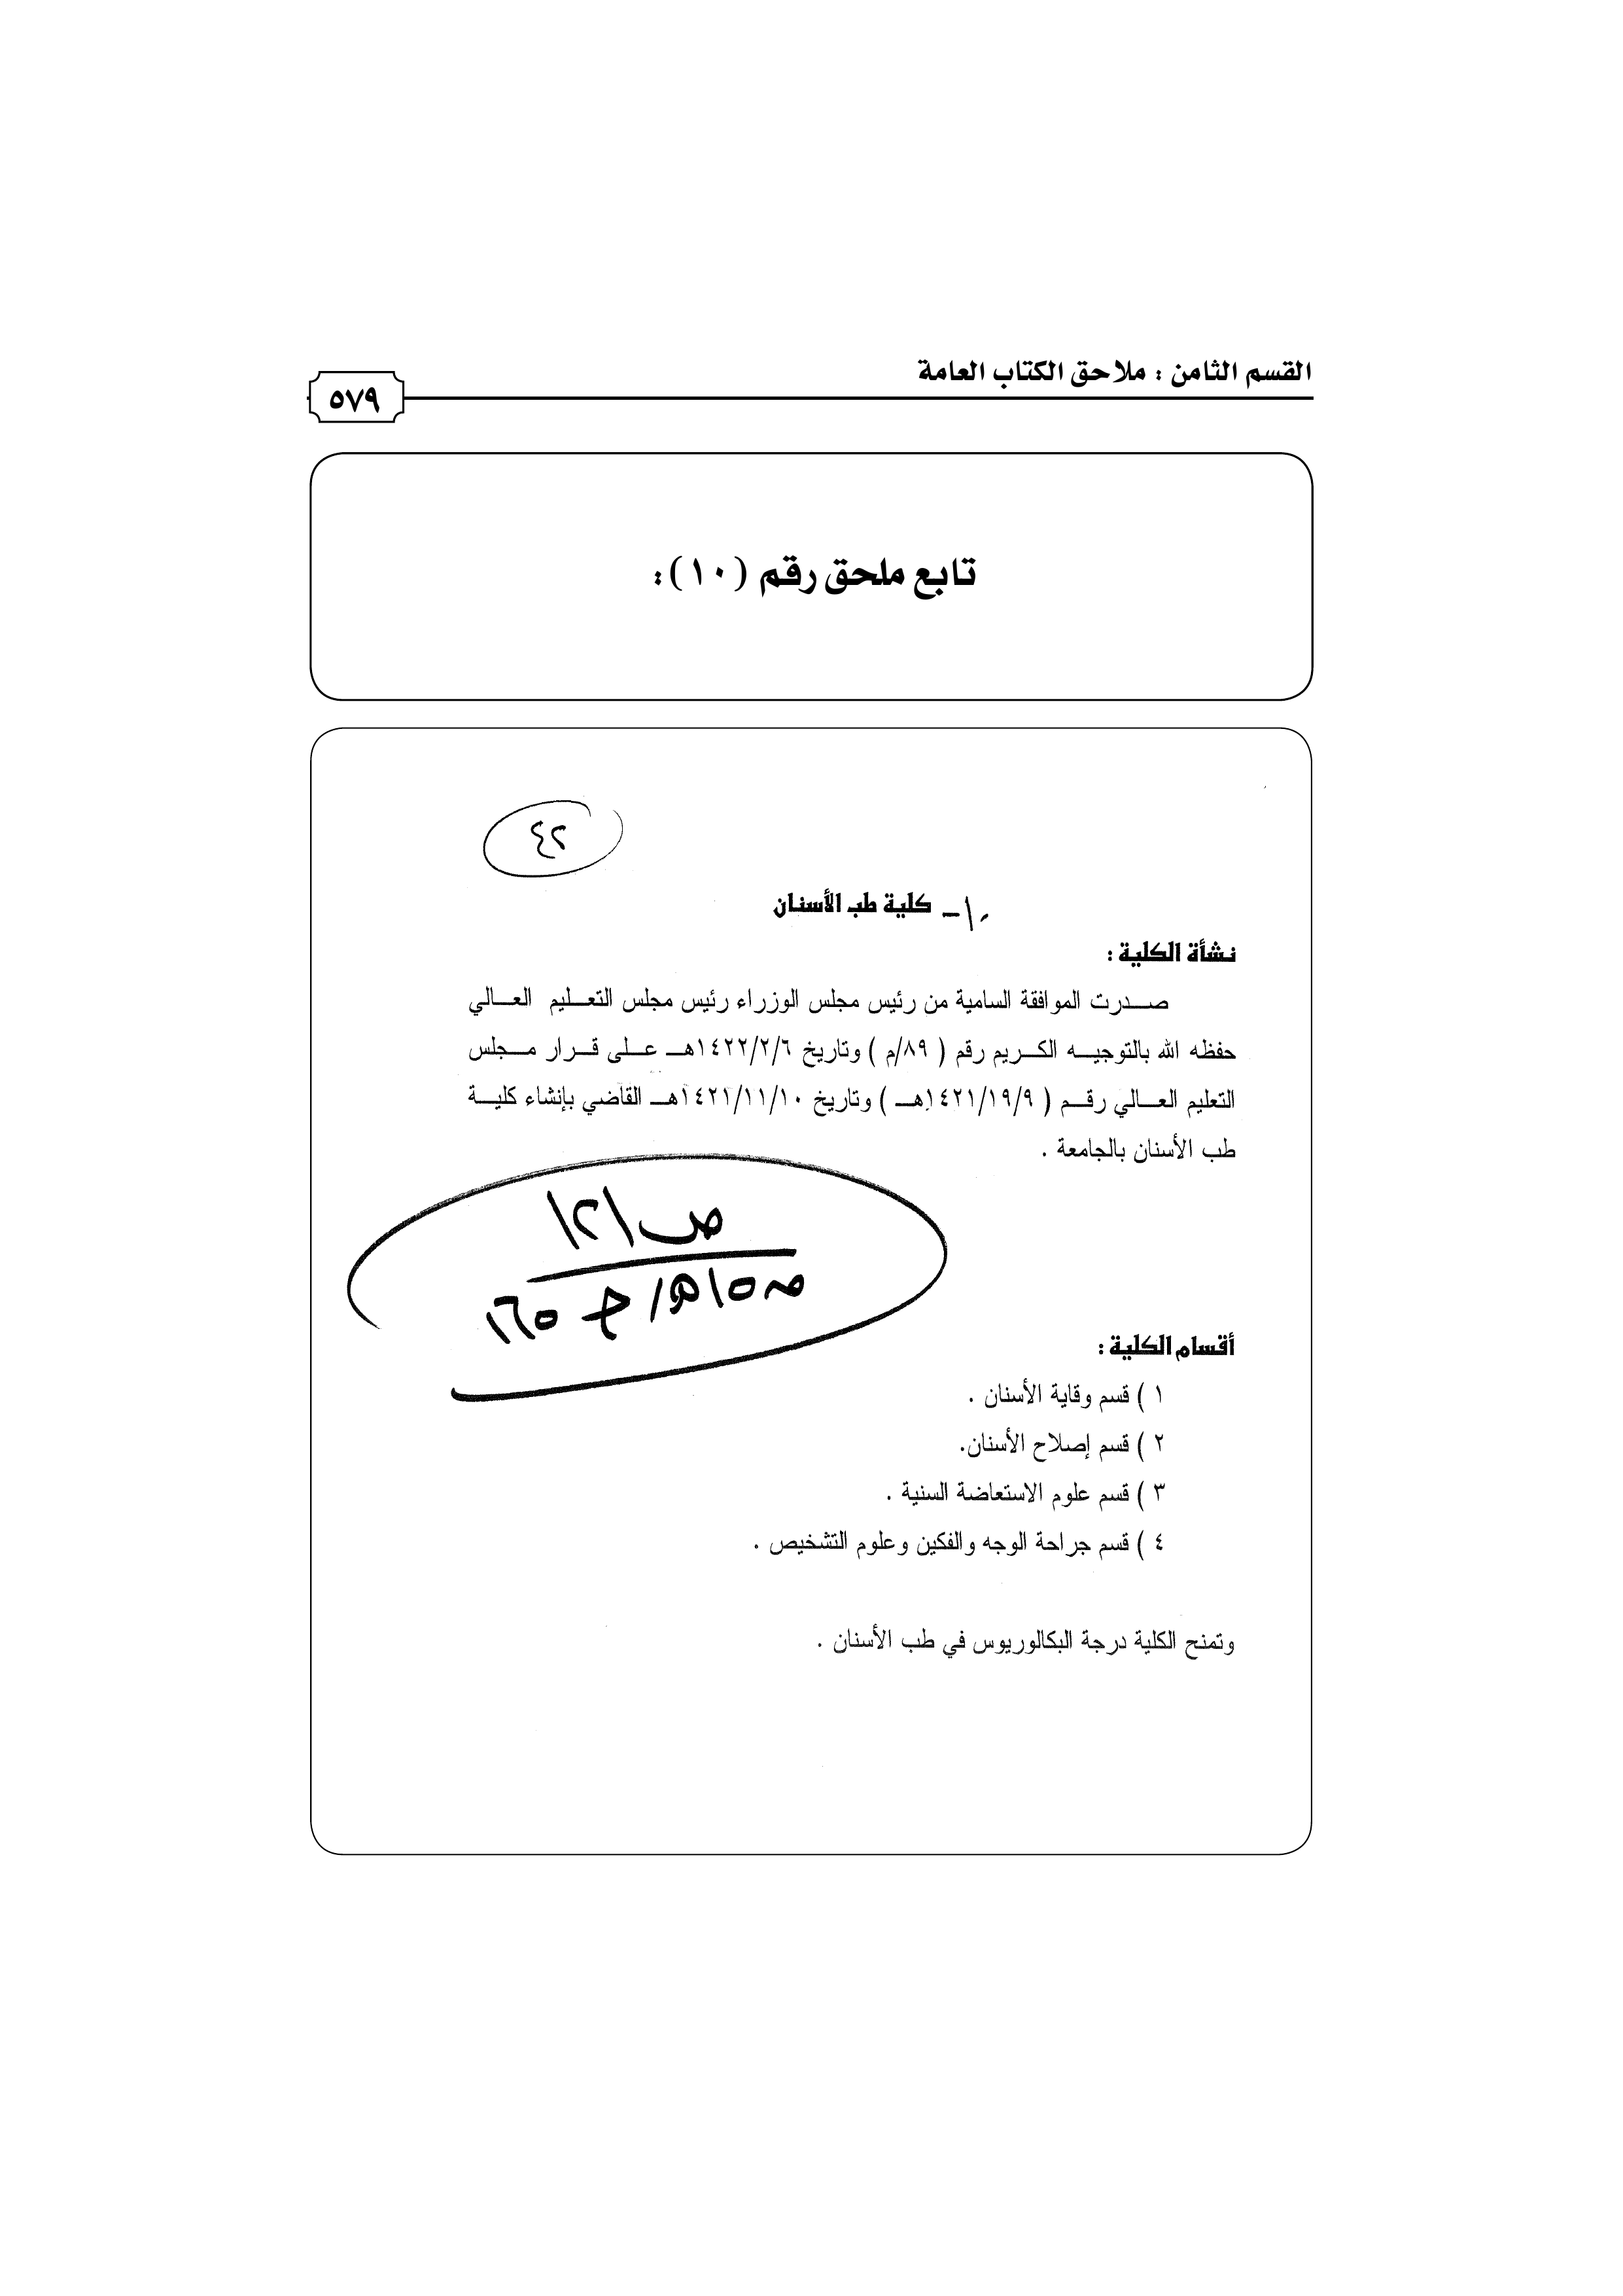 القسم الثامن : ملاحق الكتاب العامة
٥٧٩
تابع ملحق رقم (١٠):
٤٢
١٠- كلية طب الأسنان
نشأة الكلية :
صـدرت الموافقة السامية من رئيس مجلس الوزراء رئيس مجلس التعـليم العـالي
حفظه الله بالتوجيـه الكـريم رقم ( ٨٩/م ) وتاريخ ١٤٢٢/٢/٦هـ عـلى قـرار مـجلس
التعليم العـالي رقـم ( ١٤٢١/١٩/٩هـ ) وتاريخ ١٤٢١/١١/١٠هـ القاضي بإنشاء كليـة
طب الأسنان بالجامعة .
ص١٢١
١٦٥
أقسام الكلية :
١ ) قسم وقاية الأسنان .
٢ ) قسم إصلاح الأسنان.
٣ ) قسم علوم الاستعاضة السنية .
٤ ) قسم جراحة الوجه والفكين وعلوم التشخيص .
وتمنح الكلية درجة البكالوريوس في طب الأسنان .